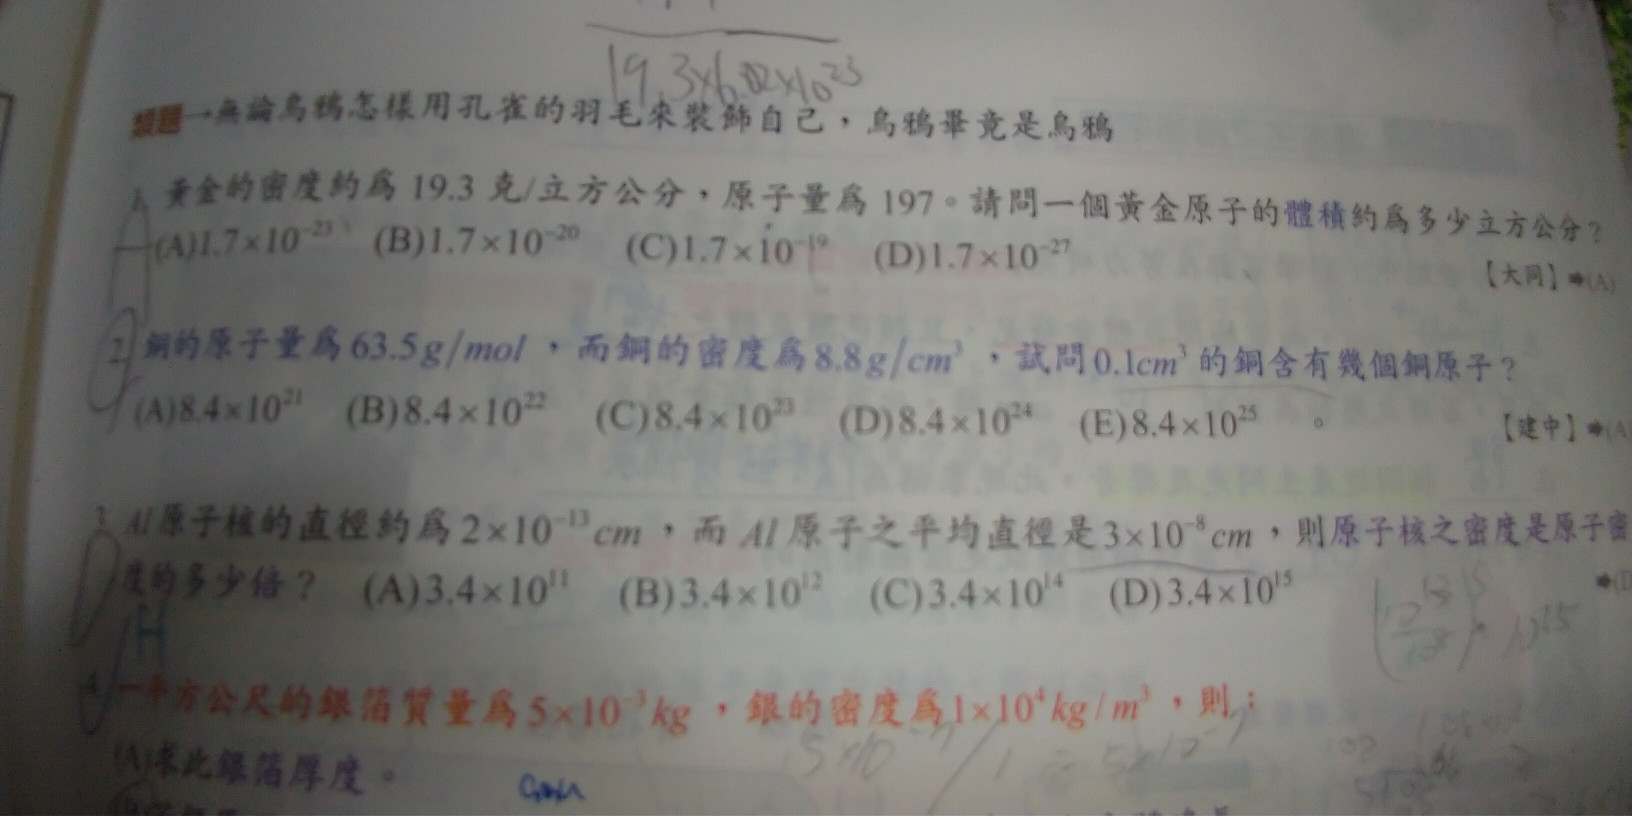 19.3×6.02×10²³
類題→無論烏鴉怎樣用孔雀的羽毛來裝飾自己，烏鴉畢竟是烏鴉
1. 黃金的密度約為 19.3 克/立方公分，原子量為 197。請問一個黃金原子的體積約為多少立方公分？
(A)1.7×10⁻²³ (B)1.7×10⁻²⁰ (C)1.7×10⁻¹⁹ (D)1.7×10⁻²⁷
【大同】➡(A)
2. 銅的原子量為63.5g/mol，而銅的密度為8.8g/cm³，試問0.1cm³的銅含有幾個銅原子？
(A)8.4×10²¹ (B)8.4×10²² (C)8.4×10²³ (D)8.4×10²⁴ (E)8.4×10²⁵ 。
【建中】➡(A
3. Al原子核的直徑約為2×10⁻¹³cm，而Al原子之平均直徑是3×10⁻⁸cm，則原子核之密度是原子密
度的多少倍？ (A)3.4×10¹¹ (B)3.4×10¹² (C)3.4×10¹⁴ (D)3.4×10¹⁵
➡(D
4. 一平方公尺的銀箔質量為5×10⁻³kg，銀的密度為1×10⁴kg/m³，則：
(A)求此銀箔厚度。